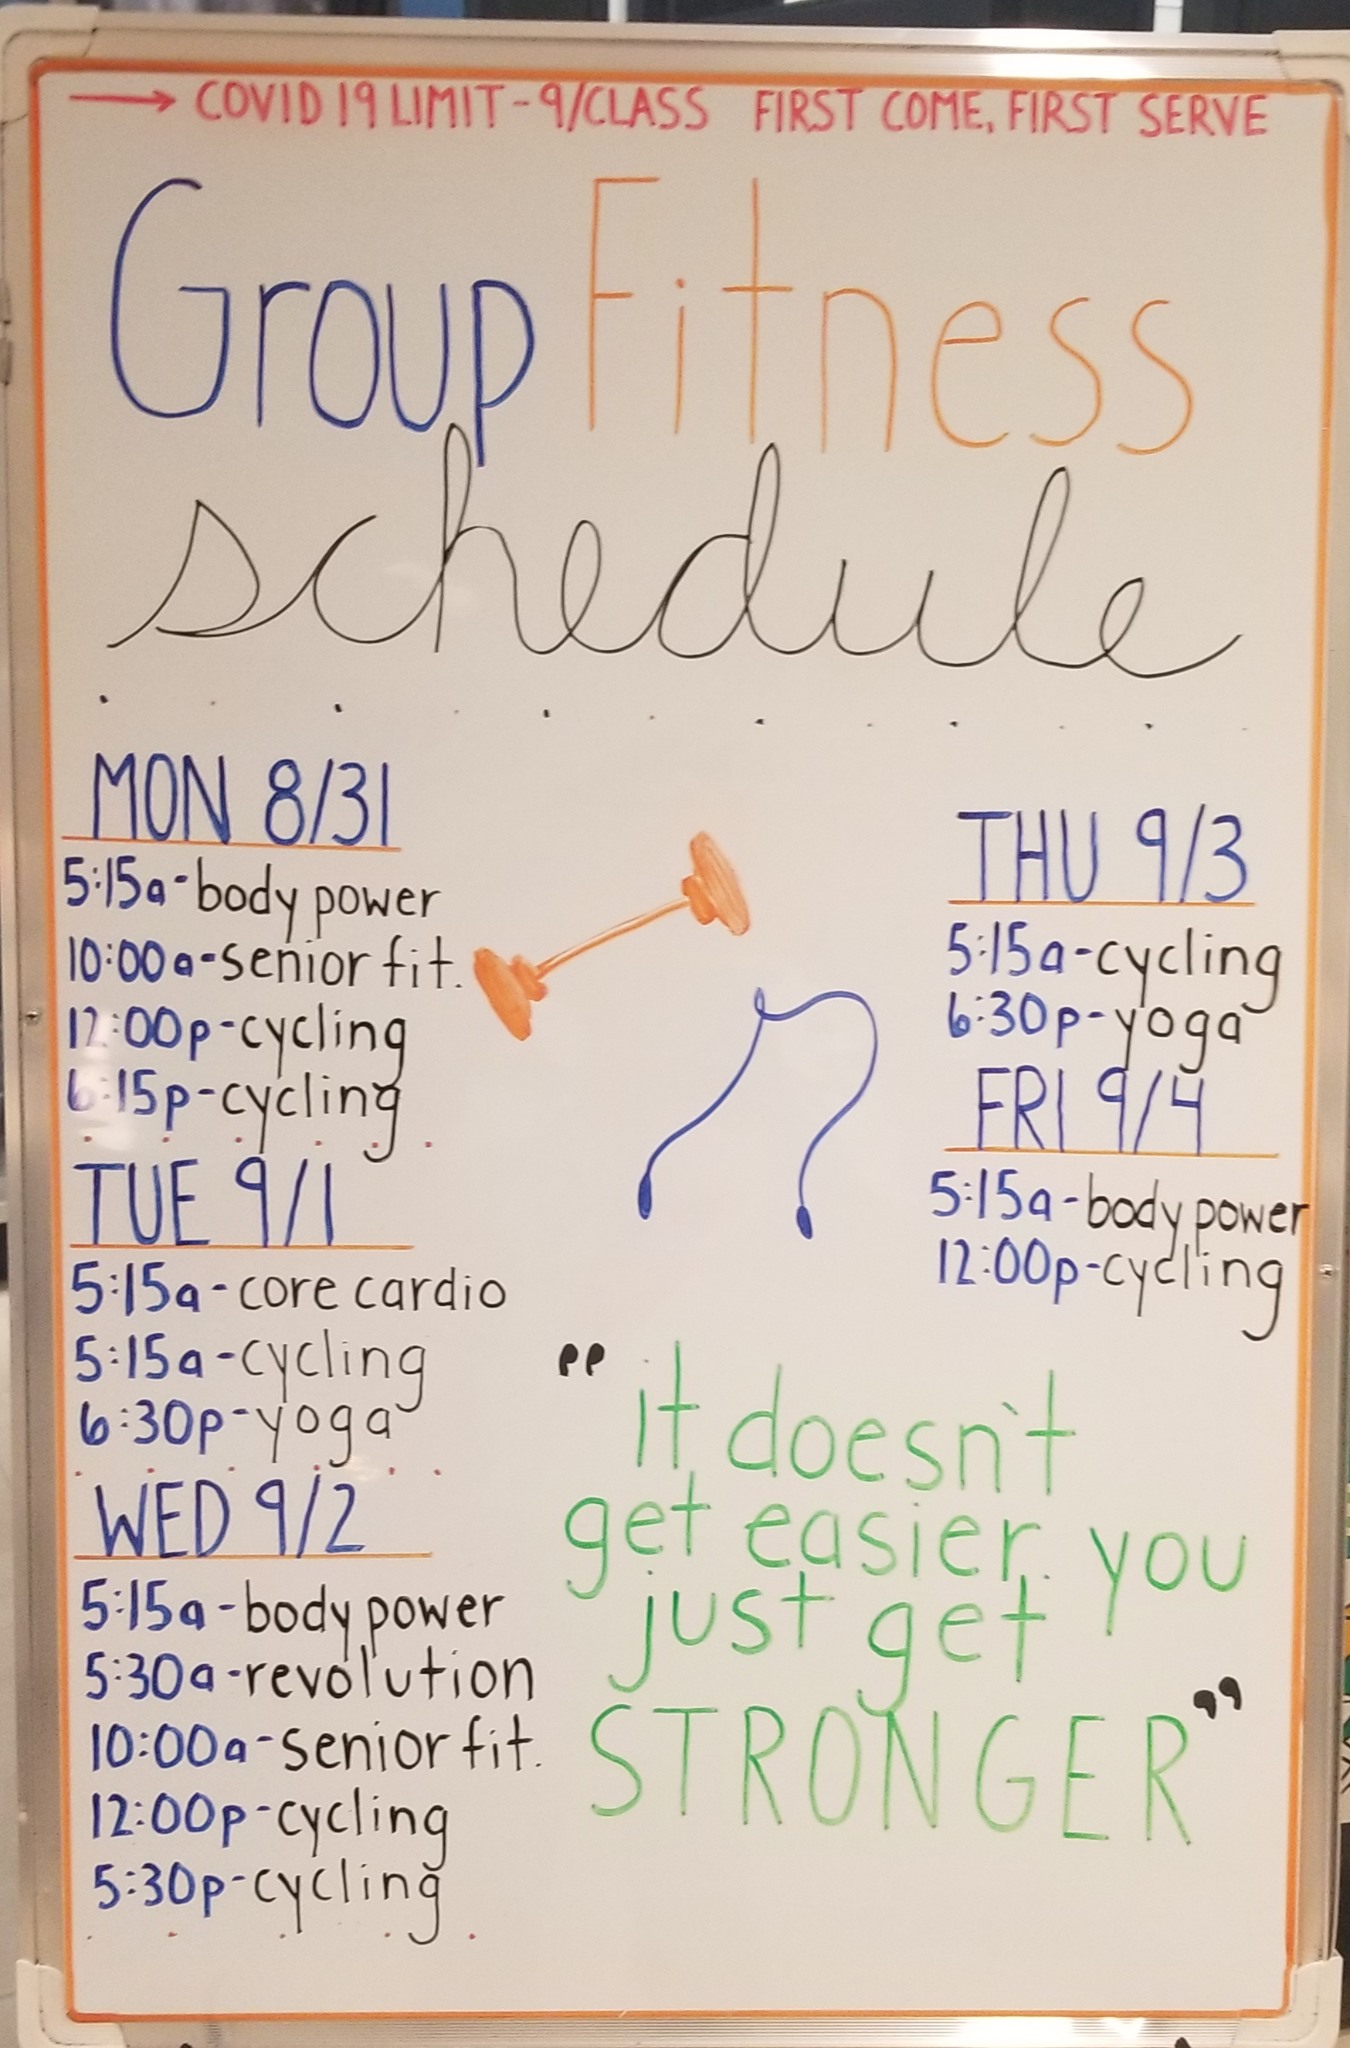 → COVID 19 LIMIT - 9/CLASS FIRST COME, FIRST SERVE
Group Fitness
schedule
MON 8/31
5:15a - body power
10:00a - senior fit.
12:00p - cycling
6:15p - cycling
TUE 9/1
5:15a - core cardio
5:15a - cycling
6:30p - yoga
WED 9/2
5:15a - body power
5:30a - revolution
10:00a - senior fit.
12:00p - cycling
5:30p - cycling
THU 9/3
5:15a - cycling
6:30p - yoga
FRI 9/4
5:15a - body power
12:00p - cycling
"it doesn't
get easier. you
just get
STRONGER"